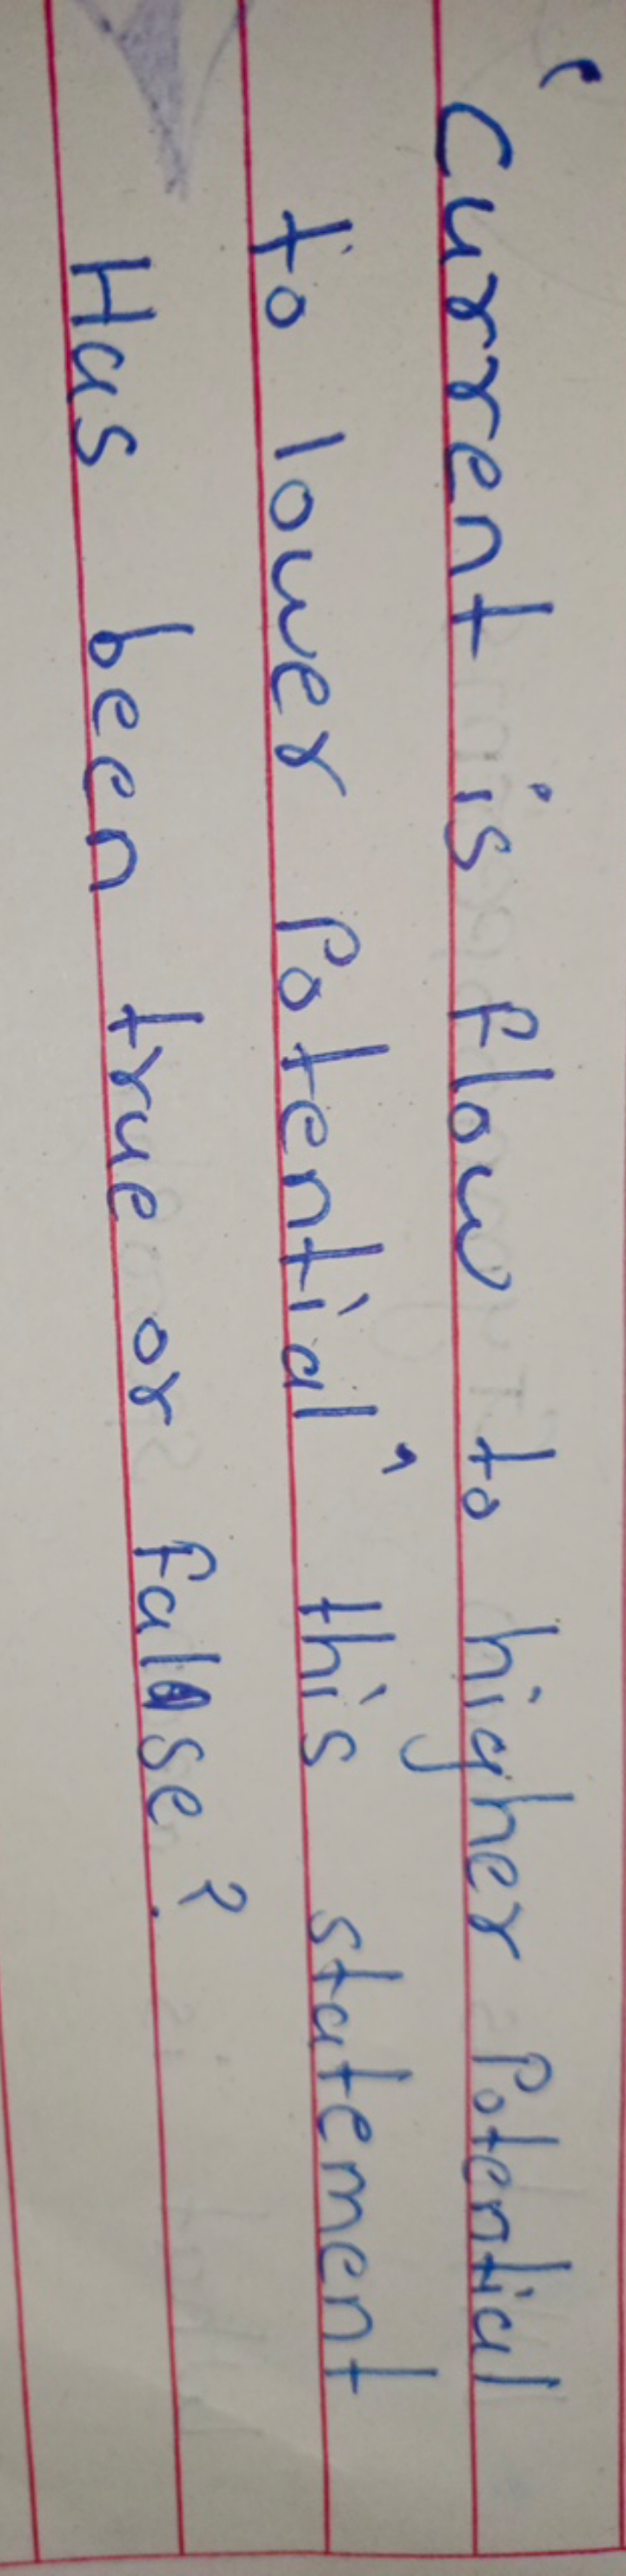 ‘ Current is flow to higher Potential
to lower Potential" this statement
Has been true or falase?